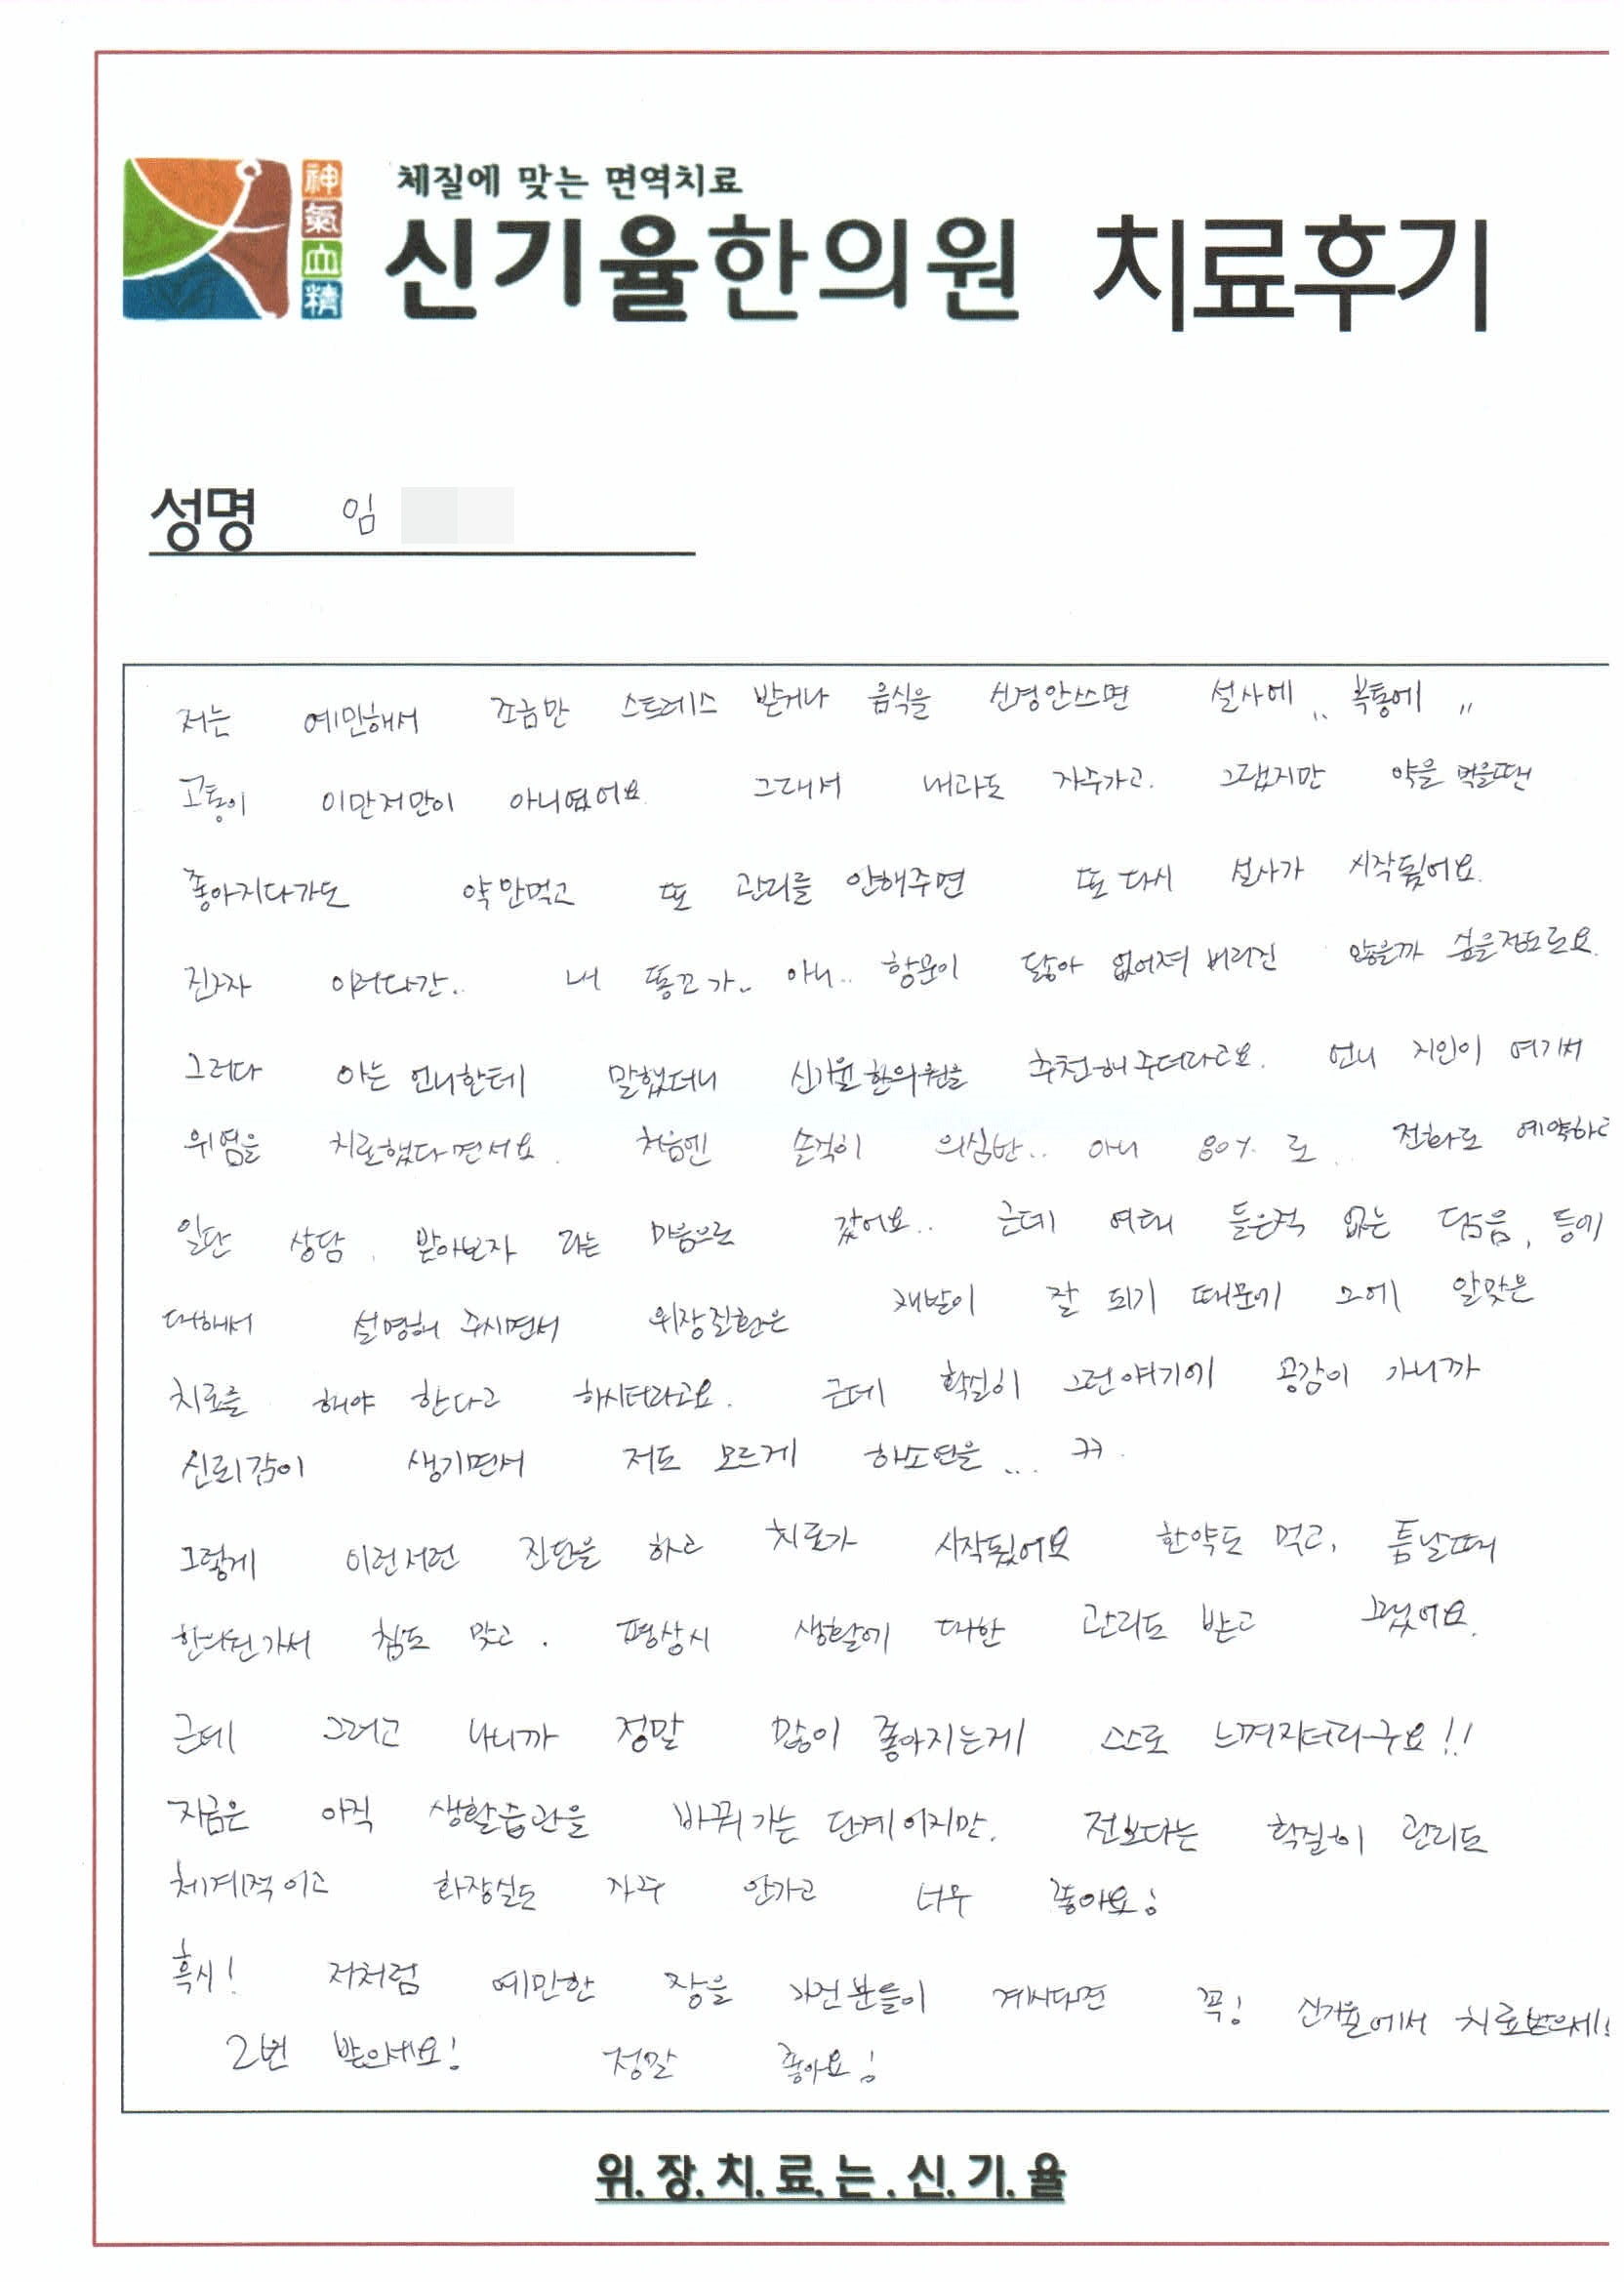 神氣血精
체질에 맞는 면역치료
신기율한의원 치료후기
성명 임
저는 예민해서 조금만 스트레스 받거나 음식을 신경안쓰면 설사에 .. 복통에 ..
고통이 이만저만이 아니였어요. 그래서 내과도 자주가고. 그랬지만 약을 먹을땐
좋아지다가도 약 안먹고 또 관리를 안해주면 또 다시 설사가 시작됬어요.
진짜 이러다간.. 내 똥꼬가.. 아니.. 항문이 닳아 없어져 버리진 않을까 싶을정도로요.
그러다 아는 언니한테 말했더니 신기율한의원을 추천해주더라고요. 언니 지인이 여기서
위염을 치료했다면서요. 처음엔 솔직히 의심반.. 아니 80% 로.. 전화로 예약하고
일단 상담. 받아보자 라는 마음으로 갔어요.. 근데 여태 들은적 없는 담음, 등에
대해서 설명해 주시면서 위장질환은 재발이 잘 되기 때문에 그에 알맞은
치료를 해야 한다고 하시더라고요. 근데 확실히 그런 얘기에 공감이 가니까
신뢰감이 생기면서 저도 모르게 하소연을 ... ㅋㅋ.
그렇게 이런저런 진단을 하고 치료가 시작됬어요 한약도 먹고, 틈날때
한의원가서 침도 맞고. 평상시 생활에 대한 관리도 받고 그랬어요.
근데 그러고 나니까 정말 많이 좋아지는게 스스로 느껴지더라구요!!
지금은 아직 생활습관을 바꿔가는 단계이지만. 전보다는 확실히 관리도
체계적이고 화장실도 자주 안가고 너무 좋아요!
혹시! 저처럼 예민한 장을 가진분들이 계시다면 꼭! 신기율에서 치료받으세
2번 받으세요! 정말 좋아요!
위.장.치.료.는.신.기.율